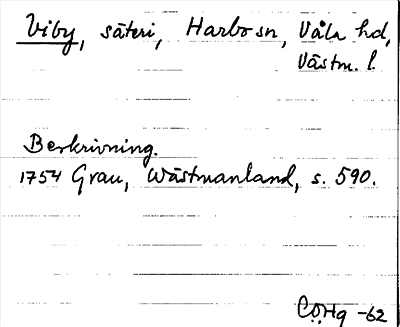 Viby, säteri, Harbo sn, Våla hd,
Västm. l.
Beskrivning.
1754 Grau, Wästmanland, s. 590.
-62